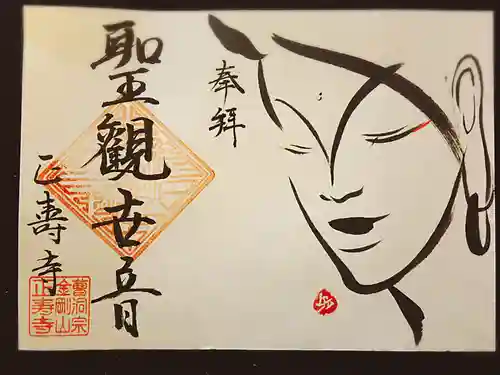 奉拝
聖觀世音
正壽寺
曹洞宗
金剛山
正寿寺